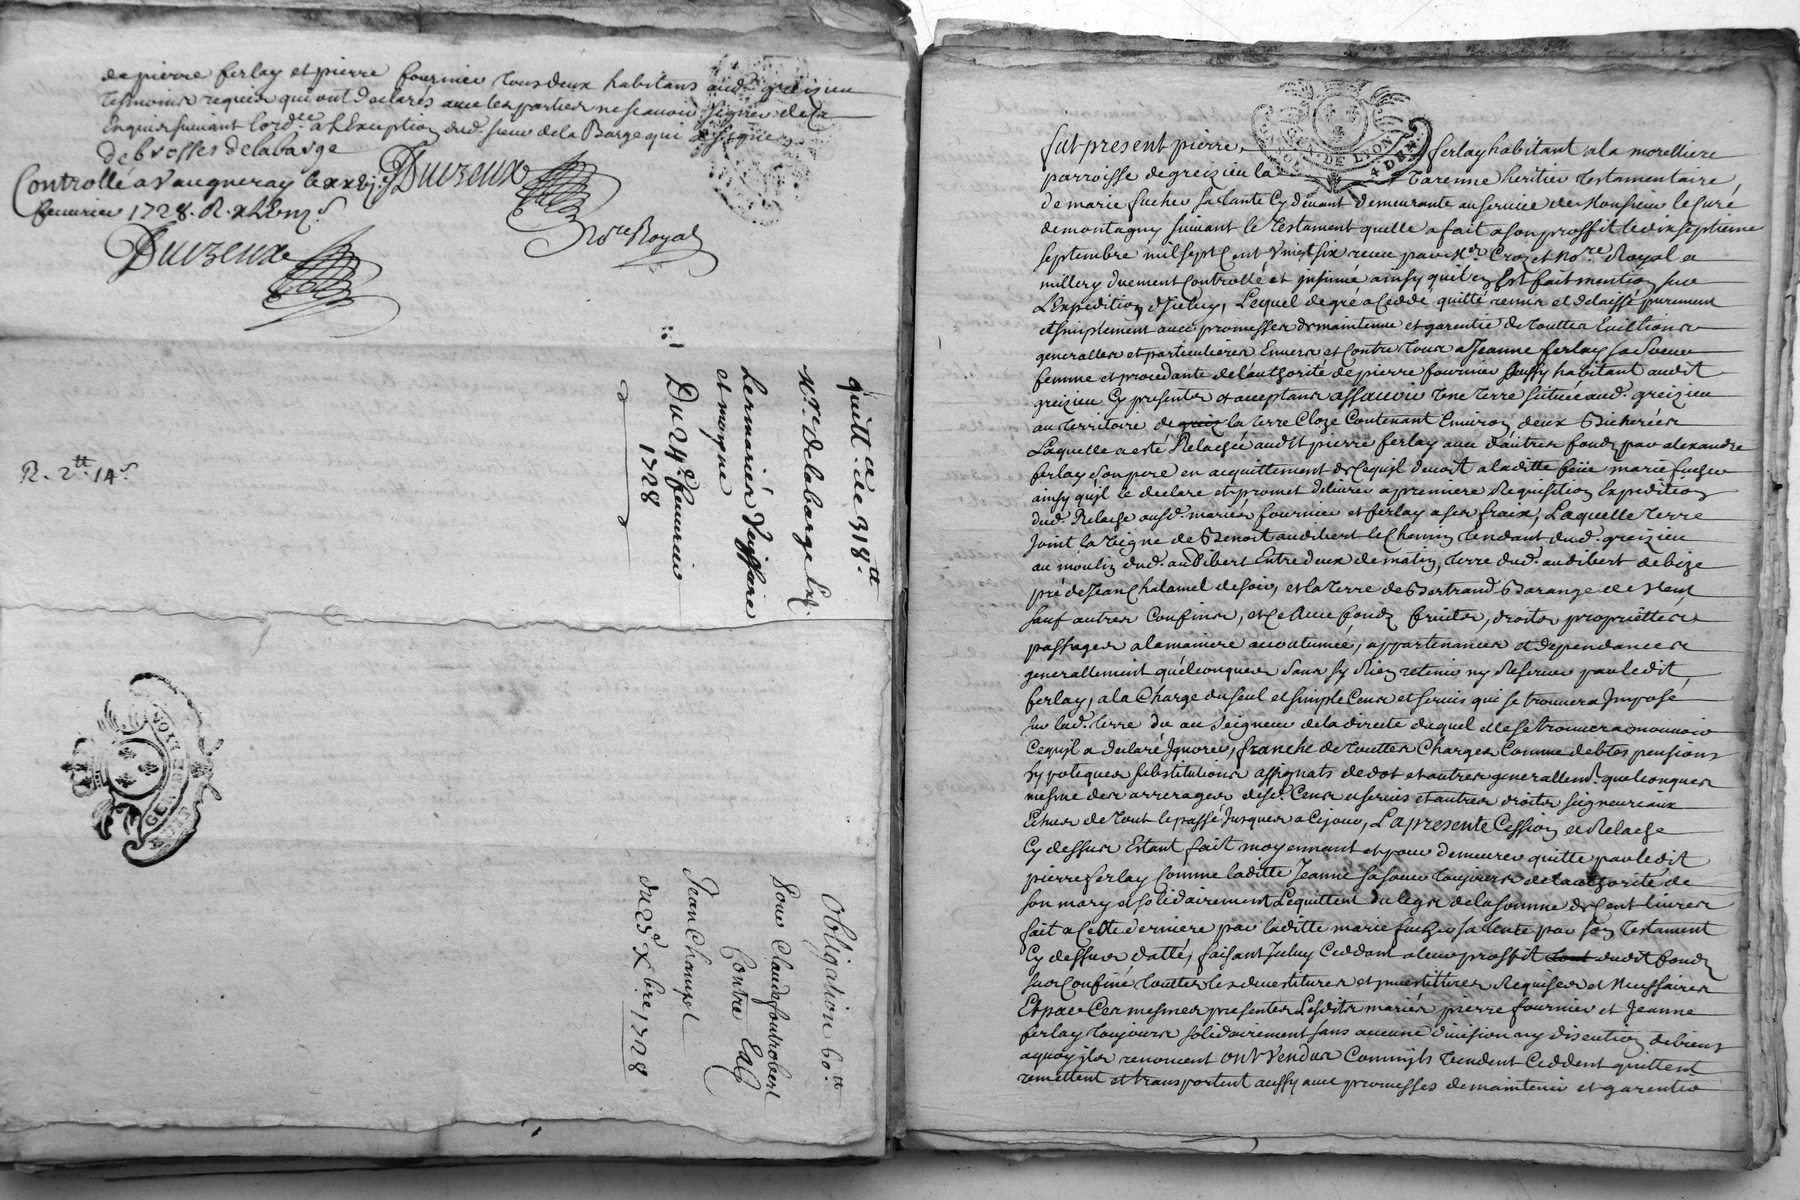 de pierre ferlay et pierre fournier tous deux habitans aud. greizieu
tesmoins requis qui ont declarés avec les parties ne scavoir signer de ce
enquis suivant l'ord.ce a l'exception dud. sieur de la Barge qui a signé
Debrosses delabarge
Controllé a Vaugneray le xxvj.e
feuvrier 1728. R. x
Duizeux
No.re Royal
Duizeux
R. 2tt. 14s
quitt.ce de 318tt
M.r Delabarge
Les mariés Veissiare
et moyne
Du 24.e feuvrier
1728
Obligation 60tt
Pour Claude soutrobert
Contre
Jean Champol
du 23.e Xbre 1728
GENER DE LYON
GENER DE LYON 4 DEN
fut present pierre ferlay habitant a la morelliere
parroisse de greizieu la varenne heritier testamentaire
de marie fucher sa tante cy devant demeurante au service de Monsieur le Curé
de montagny suivant le testament quelle a fait a son proffit le dix septieme
septembre mil sept cent vingt six receu par M.e Crozet No.re Royal a
millery duement Controllé et insinué ainsy quil en est fait mention sur
l'expedition d'iceluy, Lequel de gré a cedde quitté remis et delaissé purement
et simplement avec promesses de maintenue et garentie de touttes evictions
generalles et particulieres Envers et Contre tous a Jeanne ferlay sa soeur
femme et procedante de l'authorité de pierre fournier aussy habitant audit
greizieu cy presents et acceptans assavoir une terre scituée aud. greizieu
au territoire de la terre Cloze Contenant Environ deux Bicherées
Laquelle a esté Relachée audit pierre ferlay avec d'autres fonds par alexandre
ferlay son pere en acquittement de cequil devoit a laditte feüe marie fucher
ainsy qu'il le declare et promet delivrer a premiere Requisition Expedition
dud. Relache ausd. mariés fournier et ferlay a ses fraix, Laquelle terre
Joint la vigne de Benoit audibert le Chemin tendant dud. greizieu
au moulin dud. audibert Entre deux de matin, terre dud. audibert de bize
pré de Jean Chalamel de soir, et la terre de Bertrand Barange de vent
sauf autres Confins, et ce avec fonds fruits, droits proprietes
passages a la maniere accoutumée, appartenances et dependances
generallement quelconques sans sy Rien retenir ny Reserver par ledit
ferlay, a la Charge du seul et simple Cens et servis qui se trouvera Imposé
sur lad. terre du au seigneur de la directe duquel elle se trouvera mouvoir
Cequil a declaré Ignorer, franche de touttes Charges Comme debtes pensions
hypoteques substitutions assignats de dot et autres generallem.t quelconques
mesme des arrerages desd. Cens et servis et autres droits seigneuriaux
Echus de tout le passé Jusques a cejour, La presente Cession et Relache
Cy dessus Estant fait moyennant et pour demeurer quitte par ledit
pierre ferlay Comme laditte Jeanne sa soeur toujours de l'authorité de
son mary et solidairement Lequittent du legs de la somme de Cent livres
fait a Cette derniere par laditte marie fucher sa tante par son testament
Cy dessus datté, faisant Iceluy Ceddant a leur proffit dudit fonds
sus Confiné touttes les devestitures et investitures Requises et Necessaires
Et par Ces mesmes presentes Lesdits mariés pierre fournier et Jeanne
ferlay toujours solidairement sans aucune division ny discution de biens
a quoy ils renoncent ont vendus Commys vendent Ceddent quittent
remettent et transportent aussy avec promesses de maintenir et garentir